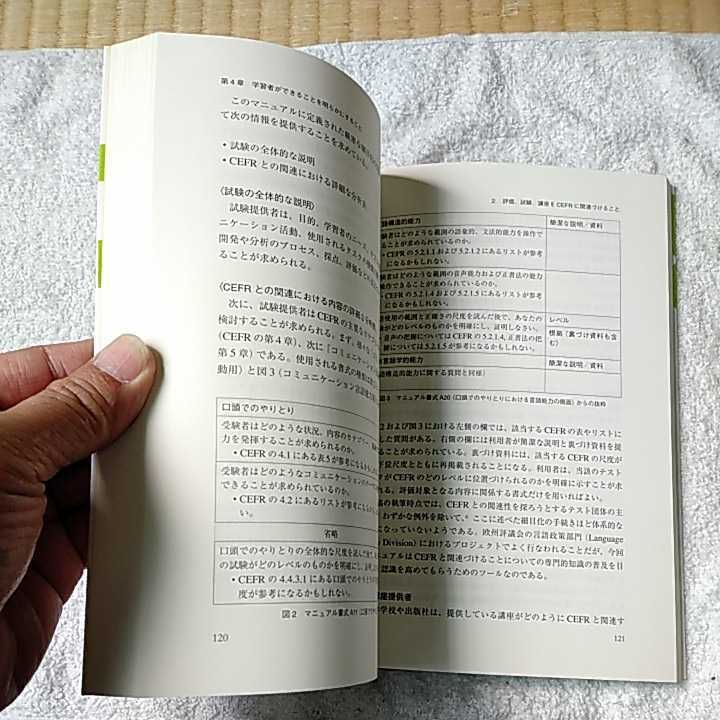 第4章 学習者ができることを明らかにすると
このマニュアルに定義された
て次の情報を提供することを求めている。
・試験の全体的な説明
・CEFRとの関連における詳細な分析
〈試験の全体的な説明〉
試験提供者は、目的、学習者のニーズ、
ニケーション活動、使用されるタスク
開発や分析のプロセス、採点、評価など
ことが求められる。
〈CEFRとの関連における内容の詳細な分析
次に、試験提供者はCEFRの主要な
検討することが求められる。まず、様々な
(CEFRの第4章)、次に(コミュニケーション
第5章)である。使用される書式の
動用)と図3(コミュニケーション言語能力
口頭でのやりとり
受験者はどのような状況、内容のカテゴリー、
力を発揮することが求められるのか。
・CEFRの4.1にある表5が参考になるかもしれ
受験者はどのようなコミュニケーションの
できることが求められているのか。
・CEFRの4.2にあるリストが参考になるかもしれな
い。
省略
口頭でのやりとりの全体的な尺度を読んで
の試験がどのレベルのものかを明確にし、証明
・CEFRの4.4.3.1にある口頭でのやりと
度が参考になるかもしれない。
図2 マニュアル書式A11
120
2. 評価、試験、講座をCEFRに関連づけること
構造的能力
簡潔な説明/資料
験者はどのような範囲の語彙的、文法的能力を操作で
ることが求められているのか。
CEFRの5.2.1.1および5.2.1.2にあるリストが参考
になるかもしれない。
験者はどのような範囲の音声能力および正書法の能力
作できることが求められているのか。
CEFRの5.2.1.4および5.2.1.5にあるリストが参考
になるかもしれない。
使用の範囲と正確さの尺度を読んだ後で、あなたの
がどのレベルのものかを明確にし、証明しなさい。
音声の把握についてはCEFRの5.2.1.4、正書法の把
については5.2.1.5が参考になるかもしれない。
レベル
根拠(裏づけ資料も含
む)
言語学的能力
簡潔な説明/資料
構造的能力に関する質問と同様)
図3 マニュアル書式A20(口頭でのやりとりにおける言語能力の側面)からの抜粋
2および図3における左側の欄では、該当するCEFRの表やリストに
した質問がある。右側の欄には利用者が簡潔な説明と裏づけ資料を提
ることが求められている。裏づけ資料には、該当するCEFRの尺度が
下位尺度とともに再掲載されることになる。利用者は、当該のテスト
がCEFRのどのレベルに位置づけられるのかを明確に示すことが求
れる。評価対象となる内容に関係する書式だけを用いればよい。
の執筆時点では、CEFRとの関連性を探ろうとするテスト団体の主
わずかな例外を除いて、ここに述べた細目化の手続きほど体系的な
になっていないようである。欧州評議会の言語政策部門(Language
Division)におけるプロジェクトでよく行なわれることだが、今回
ュアルはCEFRと関連づけることについての専門的知識の普及を目
認識を高めてもらうためのツールなのである。
提供者
学校や出版社は、提供している講座がどのようにCEFRと関連す
121